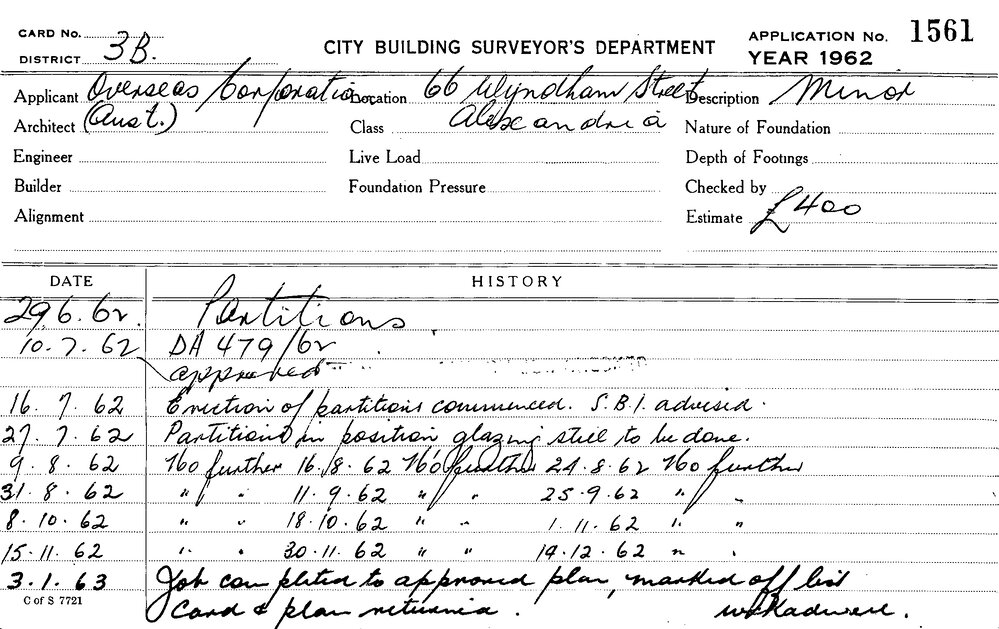 CARD No.
DISTRICT 3B.
CITY BUILDING SURVEYOR'S DEPARTMENT
APPLICATION No. 1561
YEAR 1962
Applicant Overseas Corporation Location 66 Wyndham Street Description Minor
Architect (Aust.) Class Alexandria Nature of Foundation
Engineer Live Load Depth of Footings
Builder Foundation Pressure Checked by
Alignment Estimate £400
DATE HISTORY
29.6.62. Partitions.
10.7.62 DA 479/62
approved
16.7.62 Erection of partitions commenced. S.B.I. advised.
27.7.62 Partitions in position glazing still to be done.
9.8.62 No further 16.8.62 No further 24.8.62 No further
31.8.62 " " 11.9.62 " " 25.9.62 " "
8.10.62 " " 18.10.62 " " 1.11.62 " "
15.11.62 " " 30.11.62 " " 14.12.62 " "
3.1.63 Job completed to approved plan, marked off list
C of S 7721
Card & plan returned.